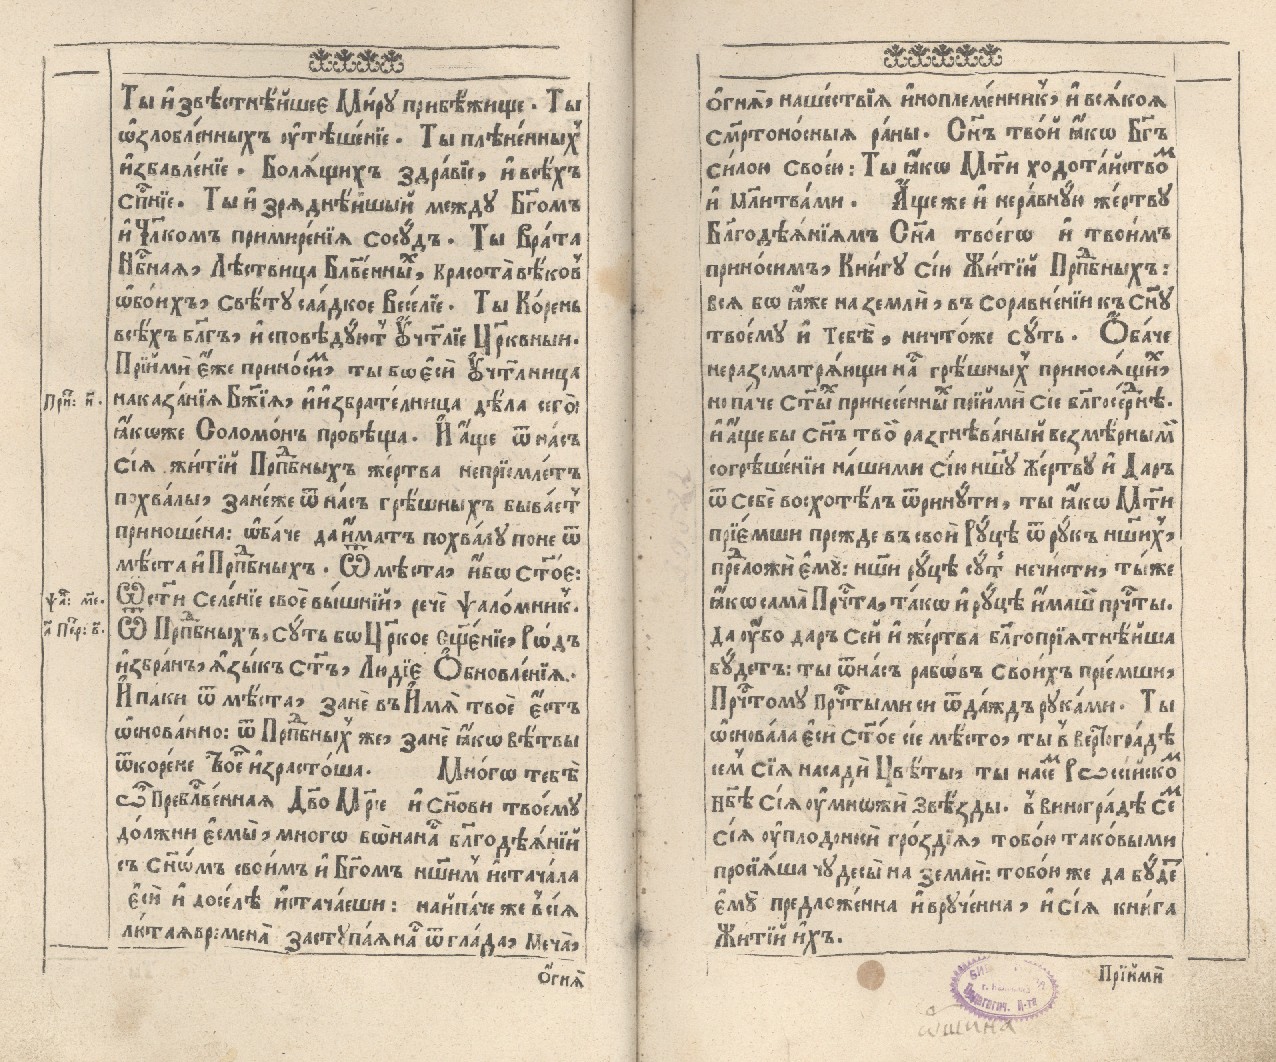 Ты и҆звѣстнѣ́йшее Ми́ру прибѣ́жище. Ты
ѡ҆ѕло́бленныхъ ᲂу҆тѣше́нїе. Ты плѣне́нныхъ
и҆збавле́нїе. Боля́щихъ здра́вїе, и҆ всѣ́хъ
сп҃се́нїе. Ты и҆ зря́днѣйшый между Бг҃омъ
и҆ Чл҃комъ примире́нїя сосу́дъ. Ты Врата̀
Нб҃ная, Лѣ́ствица Блг҃ве́нных, красота̀ вѣкѡ́въ
ѡ҆бои́хъ, свѣ́ту сла́дкое Весе́лїе. Ты Ко́рень
всѣ́хъ бл҃гъ, и҆сповѣ́дуют Ѹ҆чт҃лїе Цр҃квнын.
Прїймѝ є҆́же прино́сим, ты бо є҆сѝ Ѹ҆чт҃лница
наказа́нїя Бж҃їя, и҆ и҆збрате́лница дѣ́ла єгѡ̀:
Прит: и҃.
ꙗ҆́коже Соломо́нъ провѣща. И҆ а҆́ще ѿ на́съ
сїя житї́й Прпⷣбныхъ же́ртва непрїе́млетъ
похвалы̀, зане́же ѿ на́съ грѣ́шныхъ быва́етъ
приноше́на: ѡ҆ба́че да и҆́матъ похвалу̀ поне ѿ
мѣ́ста и҆ Прпⷣбныхъ. Ѿ мѣ́ста, и҆́бо ст҃о́е:
Ѱал: м҃е.
Ѡ҆ст҃ѝ Селе́нїе своѐ вы́шнїй, речѐ Ѱало́мник.
а҃ Петр: в҃.
Ѿ Прпⷣбныхъ, су́ть бо Цр҃кое сщ҃е́нїе, Ро́дъ
и҆збра́нъ, ꙗ҆зы́къ ст҃ъ, Лю́дїе Ѡ҆бновле́нїя.
И҆ паки ѿ мѣ́ста, занѐ въ И҆́мя твоѐ є҆́сть
ѡ҆снова́нно: ѿ Прпⷣбных же, занѐ ꙗ҆́ко вѣ́твы
ѿ ко́рене Твоегѡ̀ и҆зрасто́ша. Мно́гѡ тебѣ̀
ѽ Преблг҃ве́нная Дв҃о Мр҃їе и҆ Сн҃ови твоему̀
до́лжни є҆смы̀, многѡ бо на на́ благодѣя́нїй
съ Сн҃омъ свои́мъ и҆ Бг҃омъ нш҃им и҆сточа́ла
є҆сѝ и҆ досе́лѣ и҆сточа́еши: найпа́че же въ сїя̀
лю́тая времена̀ заступа́я на́съ ѿ гла́да, Меча̀,
Ѻ҆гня̀
ѻ҆гня̀, наше́ствїя и҆ноплеме́нник, и҆ вся́коя
см҃ртоно́сныя ра́ны. Сн҃ъ твой ꙗ҆́ко Бг҃ъ
си́лою свое́ю: Ты ꙗ҆́ко Мт҃и ходота́йством
и҆ мл҃итва́ми. А҆́ще же и҆ нера́вную же́ртву
Благодѣя́нїямъ Сн҃а твоегѡ̀ и҆ твои́мъ
прино́симъ, Кни́гу сїю̀ Житї́й Прпⷣбныхъ:
вся бо ꙗ҆́же на землѝ, въ соравне́нїи къ Сн҃у
твоему̀ и҆ Тебѣ̀, ничто́же су́ть. Ѻ҆ба́че
неразсматря́ющи на́съ грѣ́шных приноса́щих,
но па́че ст҃ых принесе́нных прїими сїе благосе́рднѣ.
и҆ а҆́ще бы Сн҃ъ твой разгнѣ́ваный безмѣ́рными
согрѣше́нїи на́шими сїю̀ нш҃у же́ртву и҆ Даръ
ѿ себѐ восхотѣ́лъ ѿри́нути, ты ꙗ҆́ко Мт҃и
прїе́мши пре́жде въ свои̂ Ру́цѣ ѿ рукъ нш҃их,
предложѝ є҆мꙋ̀: нш҃и ру́цѣ су́т нечи́сти, ты́ же
ꙗ҆́ко сама̀ Прⷱ҇та, та́ко и҆ ру́цѣ и҆́маши прⷱ҇ты.
Да ᲂу҆́бо даръ сей и҆ же́ртва благопрїя́тнѣйша
бу́детъ: ты ѿ на́съ рабѡ́въ свои́хъ прїе́мши,
Прⷱ҇тому Прⷱ҇тыми си ѿда́ждъ рука́ми. Ты
ѡ҆снова́ла є҆сѝ ст҃о́е сїе мѣ́сто, ты в Вертогра́дѣ
сем сїя насадѝ Цвѣ́ты, ты на сем Рѡссі́йском
Нб҃ѣ Сїя̀ ᲂу҆мно́жѝ Звѣ́зды. в виногра́дѣ сем
сїя̀ ᲂу҆плодоносѝ гро́здїя, тобо́ю таковы́ми
просїя́ша чудесы̀ на землѝ: тобо́ю же да бу́дет
є҆му̀ предложе́нна и҆ вруче́нна, и҆ сїя̀ кни́га
Житї́й и҆́хъ.
Прїймѝ
Педагогич. И-та